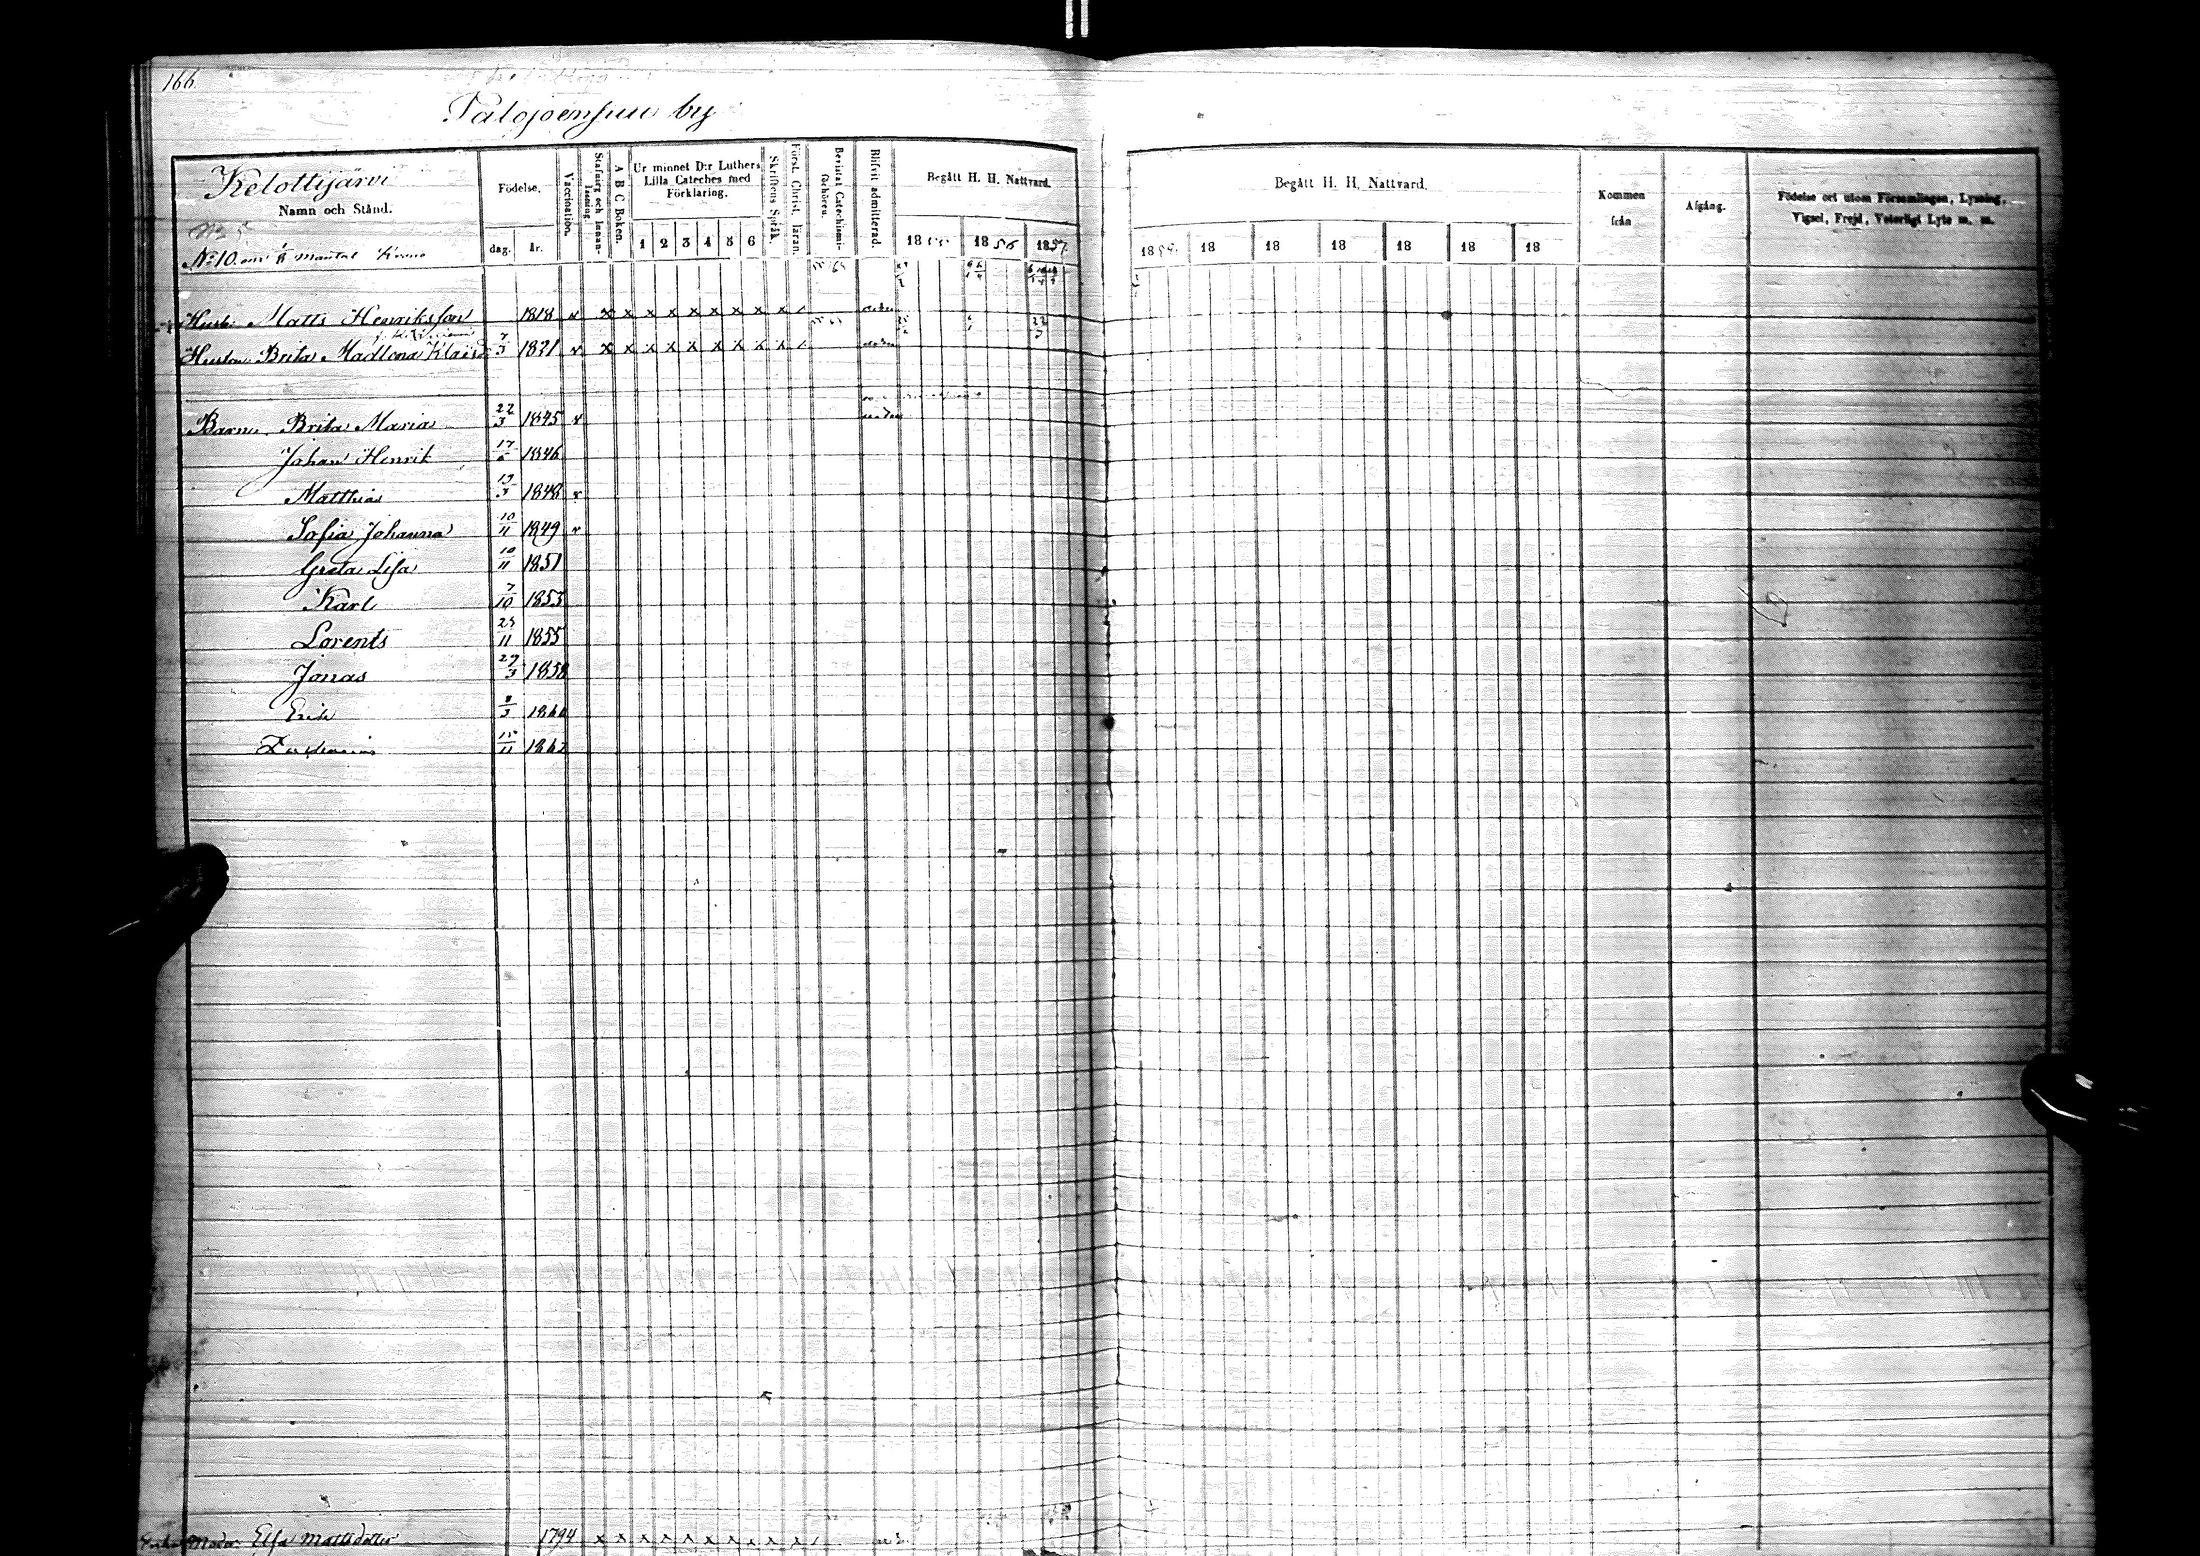 166.
Palojoensuu by
Kelottijärvi
Namn och Stånd.
Födelse.
dag. år.
Vaccination.
Stafning och Innanläsning.
A B C Boken.
Ur minnet D:r Luthers Lilla Cateches med Förklaring.
1 2 3 4 5 6
Skriftens Språk.
Först. Christ. läran.
Bevistat Catechismiförhören.
Blifvit admitterad.
Begått H. H. Nattvard.
18 1856 1857.
Begått H. H. Nattvard.
18 18 18 18 18 18
Kommen från
Afgång.
Födelse ort utom Församlingen, Lysning, Vigsel, Frejd, Veterligt Lyte m. m.
No 10 om mantal Krono
Husb. Matts Henriksson 1818 x x x x x x x x x x
Hustru Brita Madlena 7/3 1821 x x x x x x x x x x
Barn Brita Maria 22/3 1845 x
Johan Henrik 17 1846
Matthias 13/3 1848 x
Sofia Johanna 10/11 1849 x
Greta Lisa 10/11 1851
Karl 7/10 1853
Lorents 23/11 1855
Jonas 29/3 1858
Erik 8/3 1860
15/11 1862
Moder Elsa Mattsdotter 1794 x x x x x x x x x